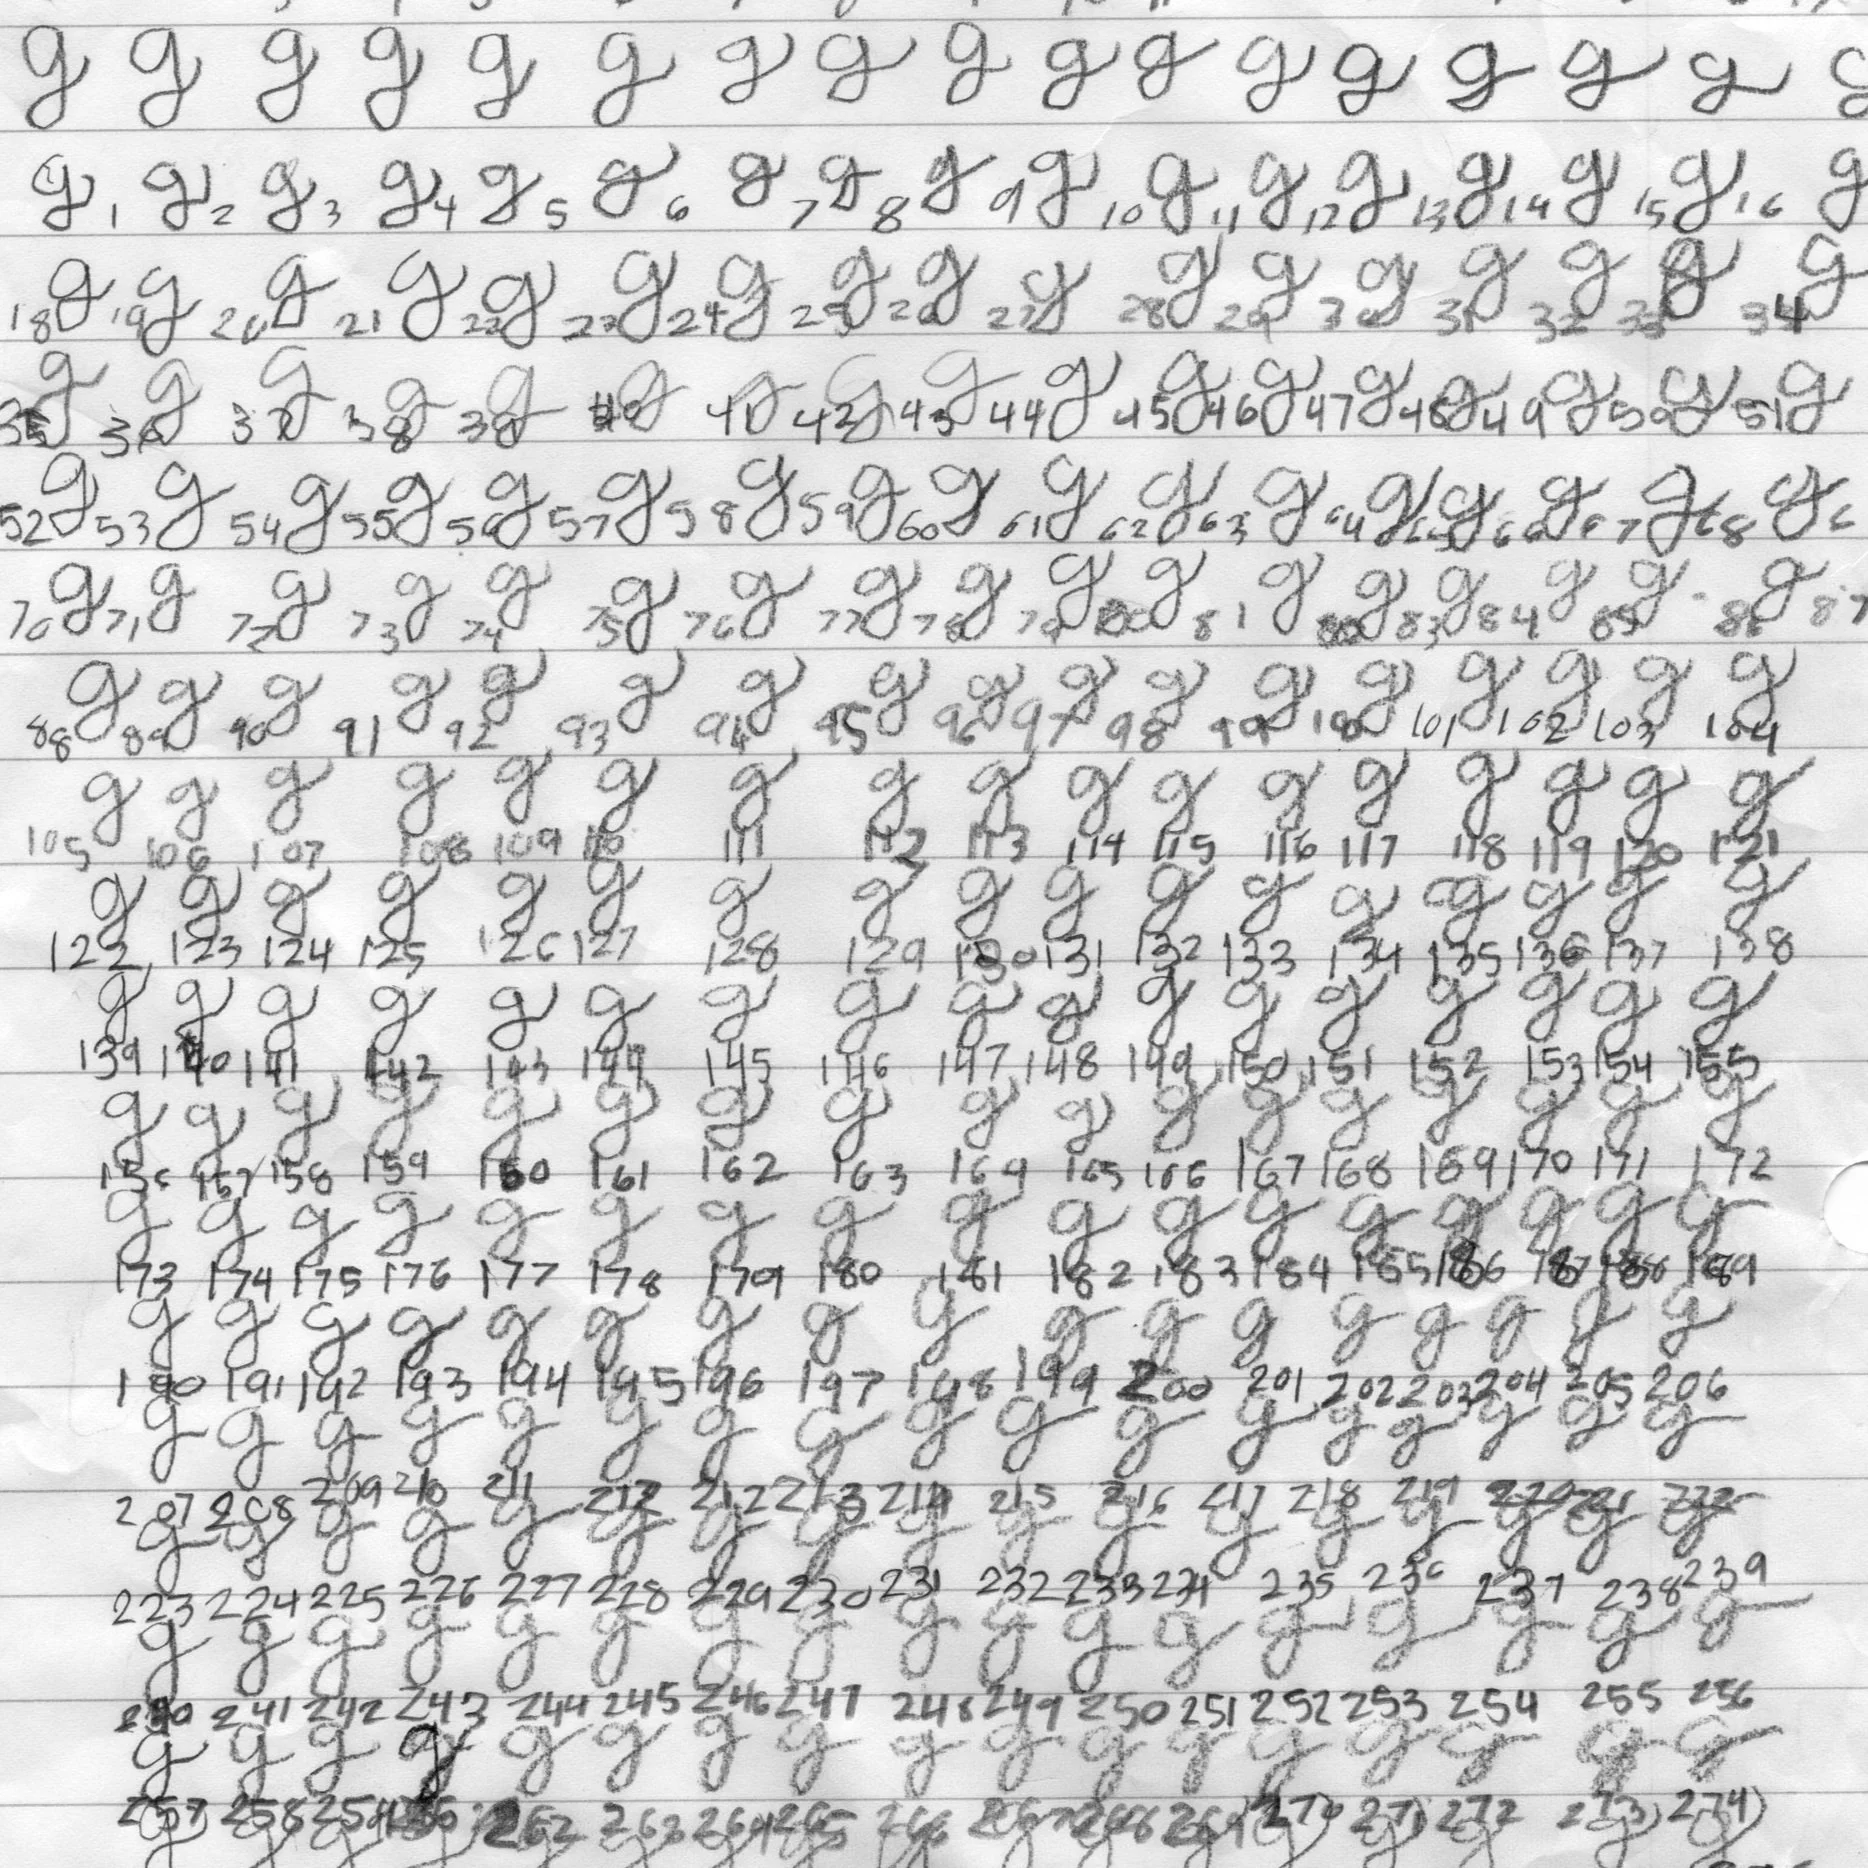 g g g g g g g g g g g g g g g g g
g 1 g 2 g 3 g 4 g 5 g 6 g 7 g 8 g 9 g 10 g 11 g 12 g 13 g 14 g 15 g 16 g
18 g 19 g 20 g 21 g 22 g 23 g 24 g 25 g 26 g 27 g 28 g 29 g 30 g 31 g 32 g 33 g 34 g
35 g 36 g 37 g 38 g 39 g 40 g 41 g 42 g 43 g 44 g 45 g 46 g 47 g 48 g 49 g 50 g 51 g
52 g 53 g 54 g 55 g 56 g 57 g 58 g 59 g 60 g 61 g 62 g 63 g 64 g 65 g 66 g 67 g 68 g 6
70 g 71 g 72 g 73 g 74 g 75 g 76 g 77 g 78 g 79 g 80 g 81 g g 83 g 84 g 85 g 86 g 87
88 g 89 g 90 g 91 g 92 g 93 g 94 g 95 g 96 g 97 g 98 g 99 g 100 g 101 g 102 g 103 g 104 g
g g g g g g g g g g g g g g g g g
105 106 107 108 109 110 111 112 113 114 115 116 117 118 119 120 121
g g g g g g g g g g g g g g g g g
122 123 124 125 126 127 128 129 130 131 132 133 134 135 136 137 138
g g g g g g g g g g g g g g g g g
139 140 141 142 143 144 145 146 147 148 149 150 151 152 153 154 155
g g g g g g g g g g g g g g g g g
156 157 158 159 160 161 162 163 164 165 166 167 168 169 170 171 172
g g g g g g g g g g g g g g g g g
173 174 175 176 177 178 179 180 181 182 183 184 185 186 187 188 189
g g g g g g g g g g g g g g g g g
190 191 192 193 194 195 196 197 198 199 200 201 202 203 204 205 206
g g g g g g g g g g g g g g g g g
207 208 209 210 211 212 212 213 214 215 216 217 218 219 220 221 222
g g g g g g g g g g g g g g g g g
223 224 225 226 227 228 229 230 231 232 233 234 235 236 237 238 239
g g g g g g g g g g g g g g g g g
240 241 242 243 244 245 246 247 248 249 250 251 252 253 254 255 256
g g g g g g g g g g g g g g g g g
257 258 259 262 263 264 265 266 267 268 269 270 271 272 273 274